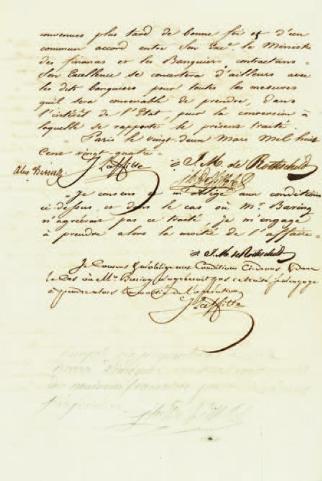 convenues plus tard de bonne foi et d'un
commun accord entre Son Exc. le Ministre
des finances et les Banquiers contractans.
Son Excellence se concertera d'ailleurs avec
les dits banquiers pour toutes les mesures
qu'il sera convenable de prendre, dans
l'intérêt de l'Etat, pour la conversion à
laquelle se rapporte le présent traité.
Paris le vingt deux Mars Mil huit
Cent vingt quatre.
J. M. de Rothschild
J. Laffitte
Je consens et m'oblige aux conditions
ci dessus et dans le cas où Mr. Baring
n'agréerait pas ce traité, je m'engage
à prendre alors la moitié de l'affaire.
J. M. de Rothschild
Je Consens & m'oblige aux Conditions Ci dessus & dans
le Cas où Mr. Baring n'agréerait pas ce traité, je m'engage
à prendre alors la moitié de l'opération
J. Laffitte